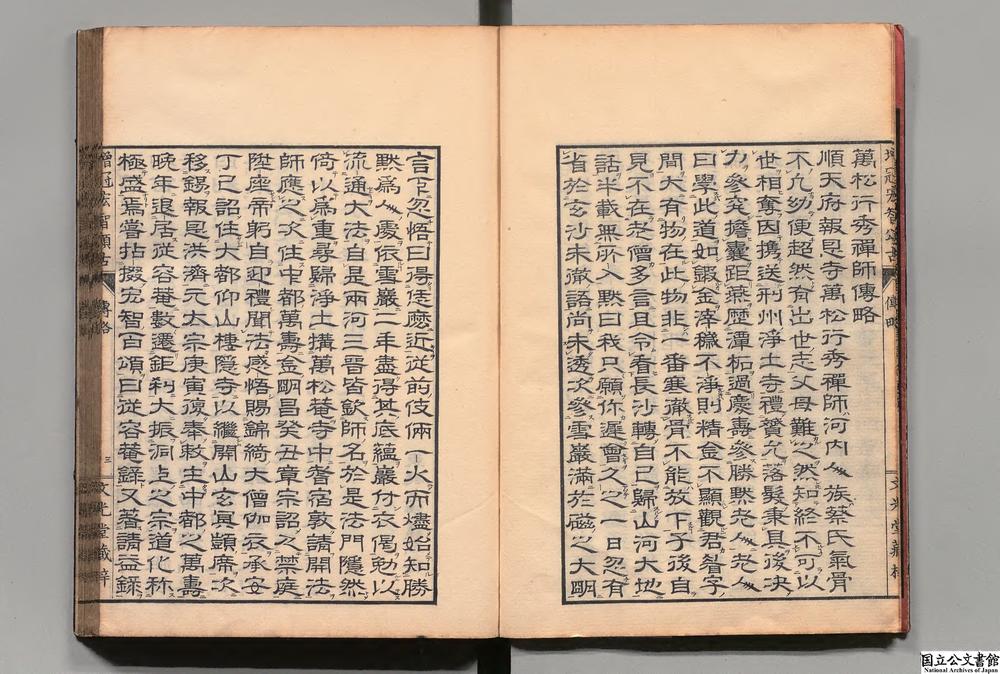 萬松行秀禪師傳略
順天府報恩寺萬松行秀禪師河内人族蔡氏氣骨
不凡幼便超然有出世志父母難之然知終不可以
世相奪因携送刑州淨土寺禮贇允落髮秉具後決
力參究擔囊距燕歷潭柘過慶壽參勝默老人老人
曰學此道如鍛金滓穢不淨則精金不顯觀君眉宇
間大有物在此物非一番寒徹骨不能放下子後自
見不在老僧多言且令看長沙轉自己歸山河大地
話半載無所入默曰我只願你遲會久之一日忽有
省於玄沙未徹語尚未透次參雪巖滿於磁之大明
言下忽悟曰得恁麼近從前伎倆一火而燼始知勝
默爲人處依雪巖二年盡得其底蘊巖付衣偈勉以
流通大法自是兩河三晉皆欽師名於是法門隱然
倚以爲重尋歸淨土搆萬松菴寺中耆宿敦請開法
師應之次住中都萬壽金明昌癸丑章宗詔之禁庭
陞座帝躬自迎禮聞法感悟賜錦綺大僧伽衣承安
丁巳詔住大都仰山棲隱寺以繼開山玄冥顗席次
移錫報恩洪濟元太宗庚寅復奉敕主中都之萬壽
晚年退居從容菴數遷鉅刹大振洞上之宗道化稱
極盛焉嘗拈掇宏智百頌曰從容菴錄又著請益錄
增冠宏智頌古 傳略 三 文光堂藏梓
国立公文書館
National Archives of Japan